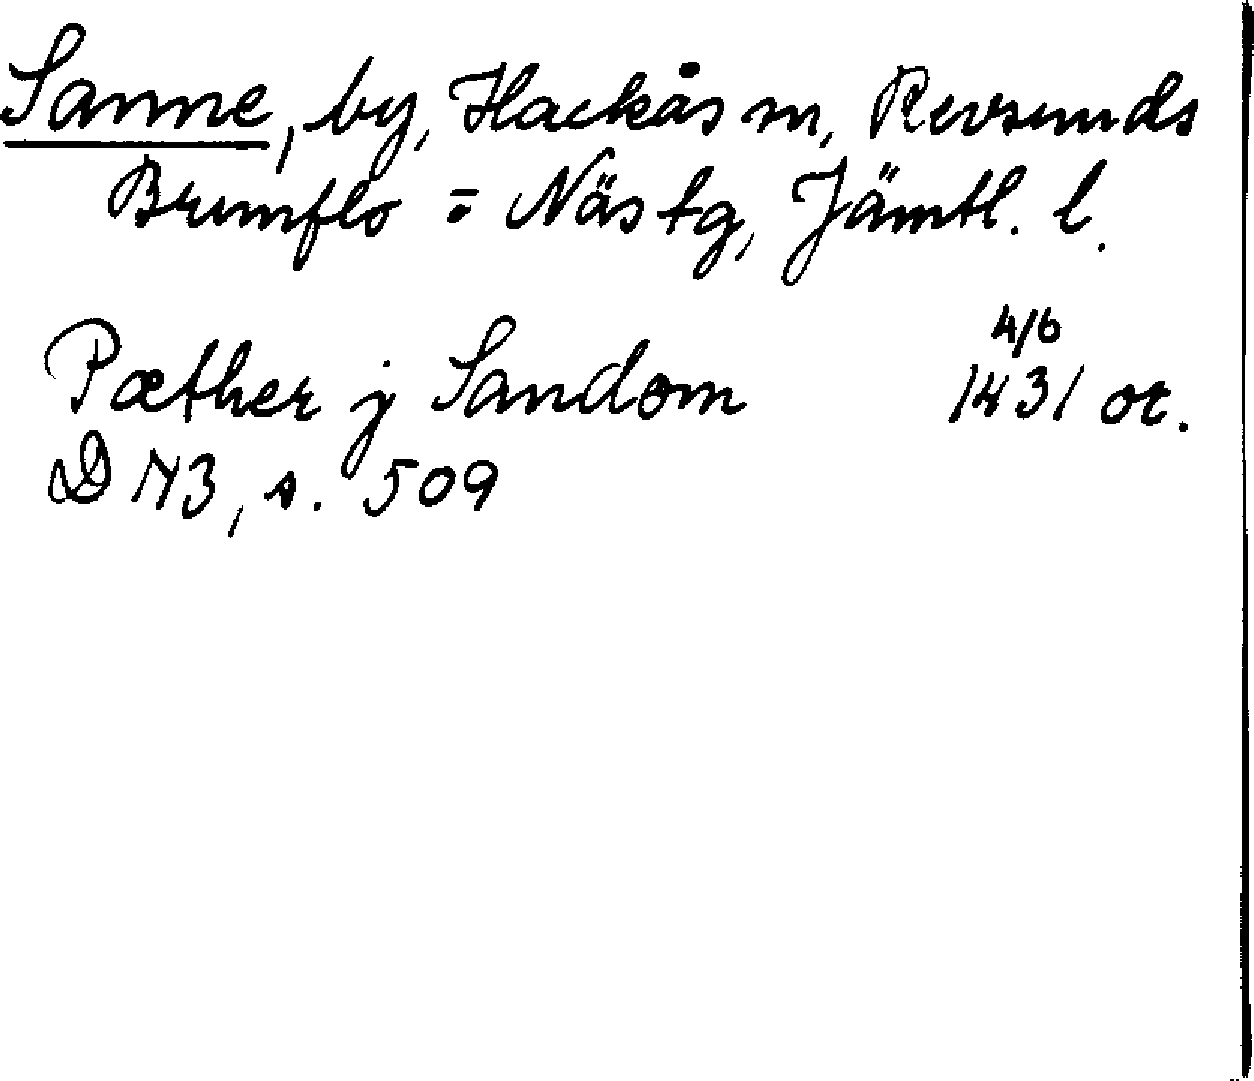 Sanne, by, Hackås sn, Revsunds
Brunflo = Näs tg, Jämtl. l.
Pæther j Sandom 4/6 1431 or.
D 173, s. 509